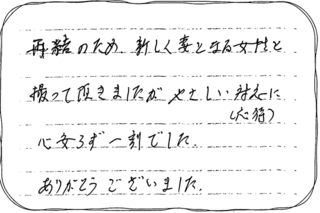 再婚のため、新しく妻となる女性と
撮って頂きましたが やさしい 対応に
(応待)
心安らず一刻でした.
ありがとうございました.